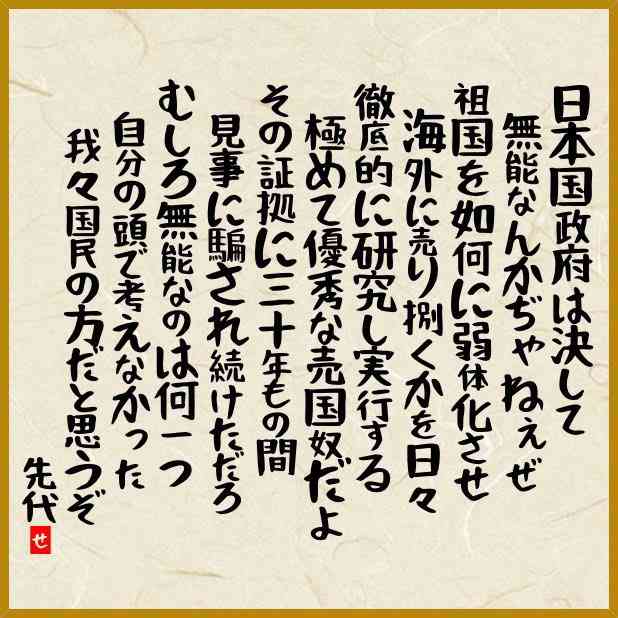 日本国政府は決して
無能なんかぢゃねぇぜ
祖国を如何に弱体化させ
海外に売り捌くかを日々
徹底的に研究し実行する
極めて優秀な売国奴だよ
その証拠に三十年もの間
見事に騙され続けただろ
むしろ無能なのは何一つ
自分の頭で考えなかった
我々国民の方だと思うぞ
先代
せ